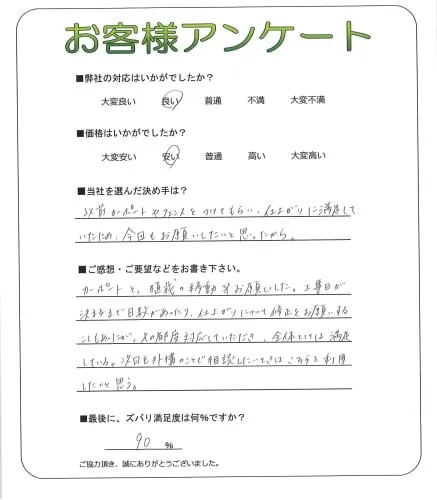 お客様アンケート
■弊社の対応はいかがでしたか？
大変良い 良い 普通 不満 大変不満
■価格はいかがでしたか？
大変安い 安い 普通 高い 大変高い
■当社を選んだ決め手は？
以前カーポートやフェンスをつけてもらい、仕上がりに満足して
いたため、今回もお願いしたいと思ったから。
■ご感想・ご要望などをお書き下さい。
カーポートと、植栽の移動等お願いした。工事日が
決まるまで日数があったり、仕上がりについて修正をお願いする
こともあったが、その都度対応していただき、全体としては満足
している。次回も外構のことで相談したいときはこちらを利用
したいと思う。
■最後に、ズバリ満足度は何%ですか？
90 %
ご協力頂き、誠にありがとうございました。